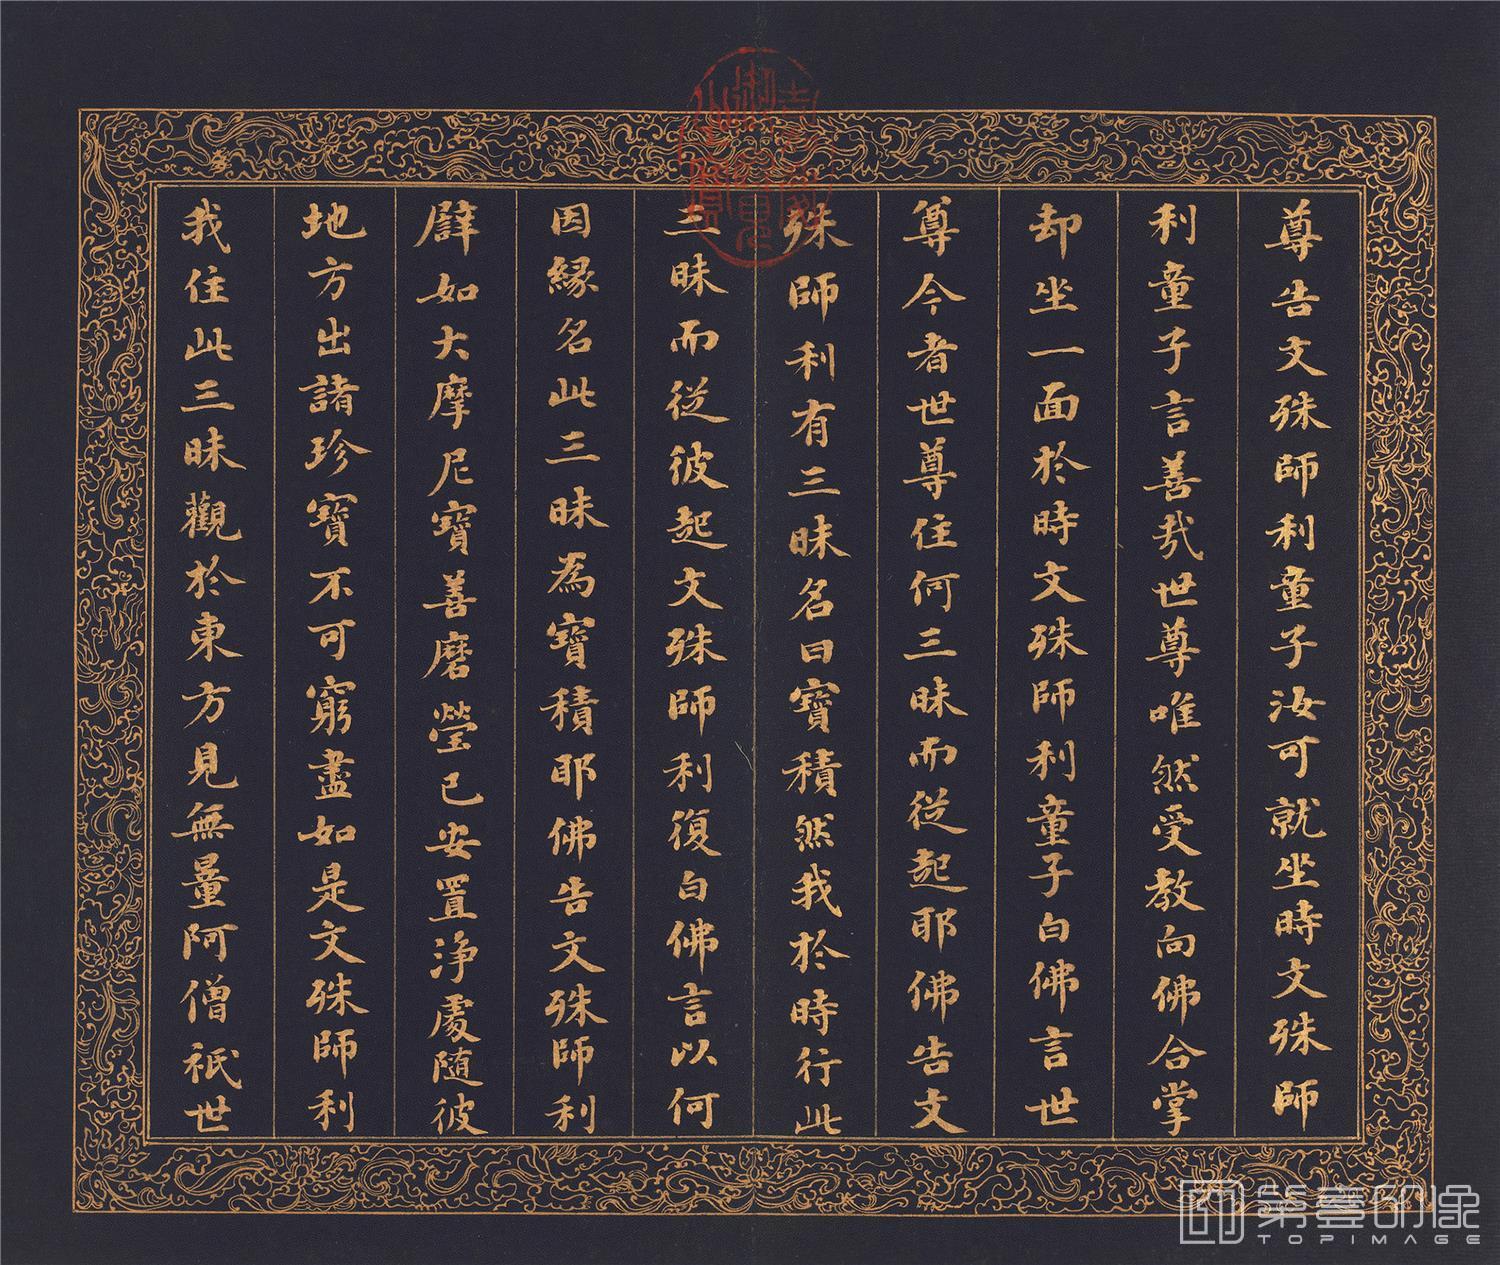 尊告文殊師利童子汝可就坐時文殊師
利童子言善哉世尊唯然受教向佛合掌
却坐一面於時文殊師利童子白佛言世
尊今者世尊住何三昧而從起耶佛告文
殊師利有三昧名曰寶積然我於時行此
三昧而從彼起文殊師利復白佛言以何
因緣名此三昧為寶積耶佛告文殊師利
譬如大摩尼寶善磨瑩已安置淨處隨彼
地方出諸珍寶不可窮盡如是文殊師利
我住此三昧觀於東方見無量阿僧祇世
第壹印像
TOPIMAGE